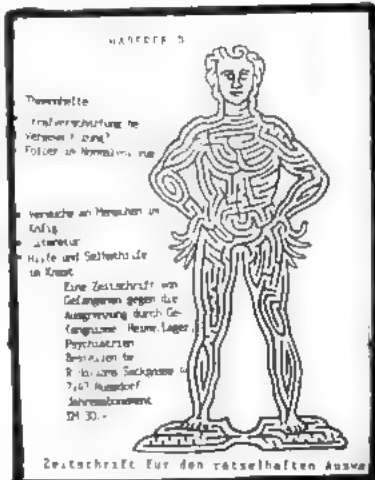 Themenhefte
Strafverschärfung be
Vergewaltigung?
Folter im Normalvollzug
Versuche an Menschen im
Käfig
Literatur
Hilfe und Selbsthilfe
im Knast
Eine Zeitschrift von
Gefangenen gegen die
Ausgrenzung durch Ge-
fängnisse Heime, Lager,
Psychiatrien
Bestellen be
Sackgasse
Jahresabonnement
DM 30.-
Zeitschrift für den rätselhaften Auswe